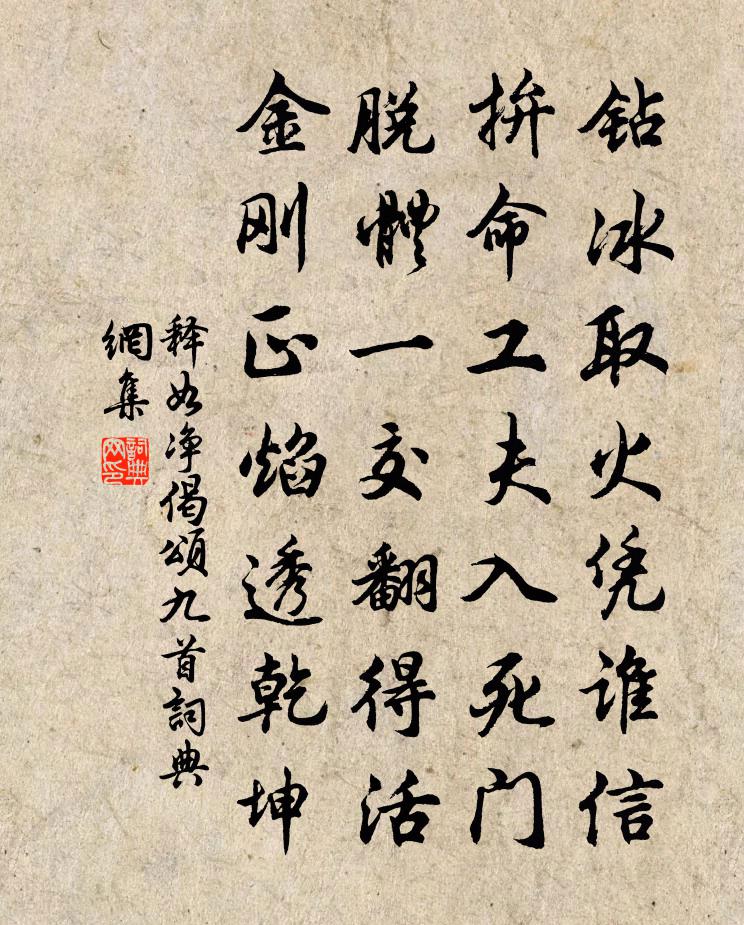 钻冰取火凭谁信
拚命工夫入死门
脱體一交翻得活
金刚正焰透乾坤
释如净偈頌九首詞典
網集
詞典
网印